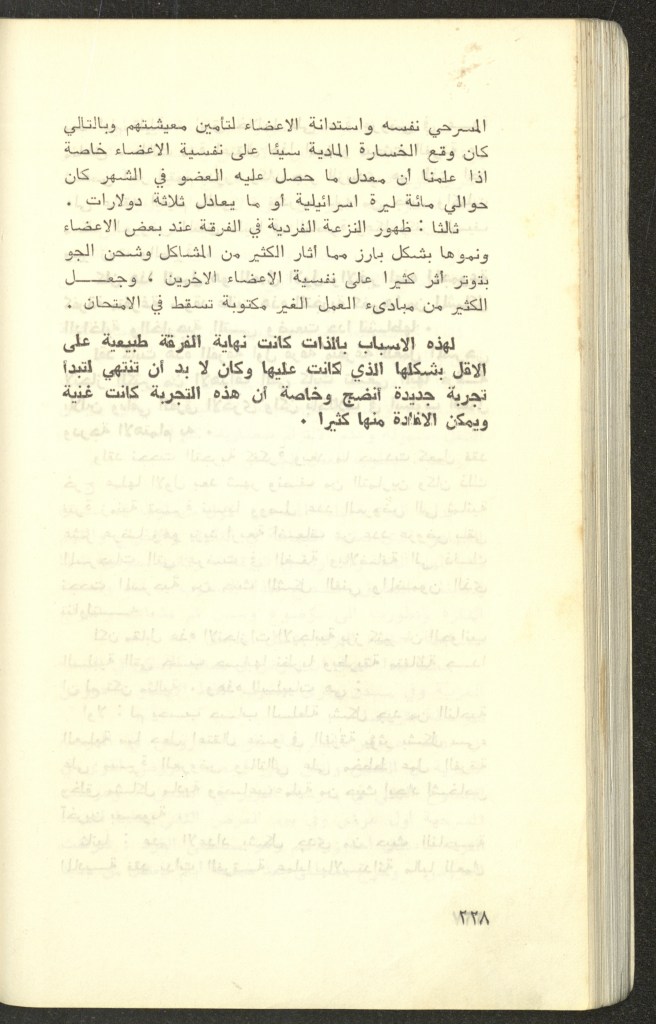 المسرحي نفسه واستدانة الاعضاء لتأمين معيشتهم وبالتالي
كان وقع الخسارة المادية سيئا على نفسية الاعضاء خاصة
اذا علمنا ان معدل ما حصل عليه العضو في الشهر كان
حوالي مائة ليرة اسرائيلية أو ما يعادل ثلاثة دولارات .
ثالثا : ظهور النزعة الفردية في الفرقة عند بعض الاعضاء
ونموها بشكل بارز مما أثار الكثير من المشاكل وشحن الجو
بتوتر أثر كثيرا على نفسية الاعضاء الاخرين . وجعــل
الكثير من مبادىء العمل الغير مكتوبة تسقط في الامتحان .
لهذه الاسباب بالذات كانت نهاية الفرقة طبيعية على
الاقل بشكلها الذي كانت عليها وكان لا بد أن تنتهي لتبدأ
تجربة جديدة أنضج وخاصة أن هذه التجربة كانت غنية
ويمكن الافادة منها كثيرا .
٢٢٨